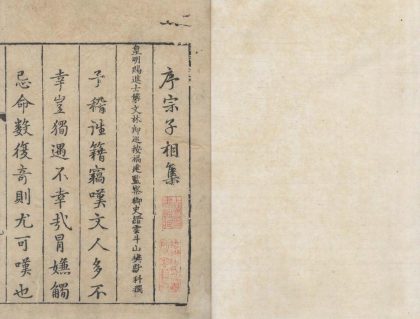 序宗子相集
皇明賜進士第文林郎巡按福建監察御史縉雲斗山樊獻科撰
予稽往籍竊嘆文人多不
幸豈獨遇不幸哉冒嫌觸
忌命數復奇則尤可嘆也